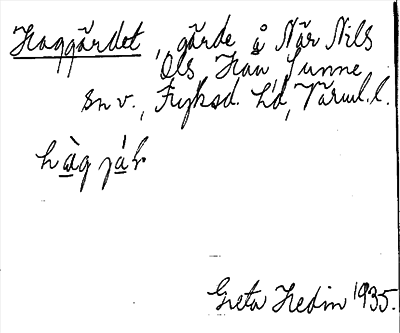 Haggärdet, gärde å När Nils
Ols Hau Sunne
sn v., Fryksd. hd, Värml. l.
hàgjáḷ
Greta Hedin 1935.